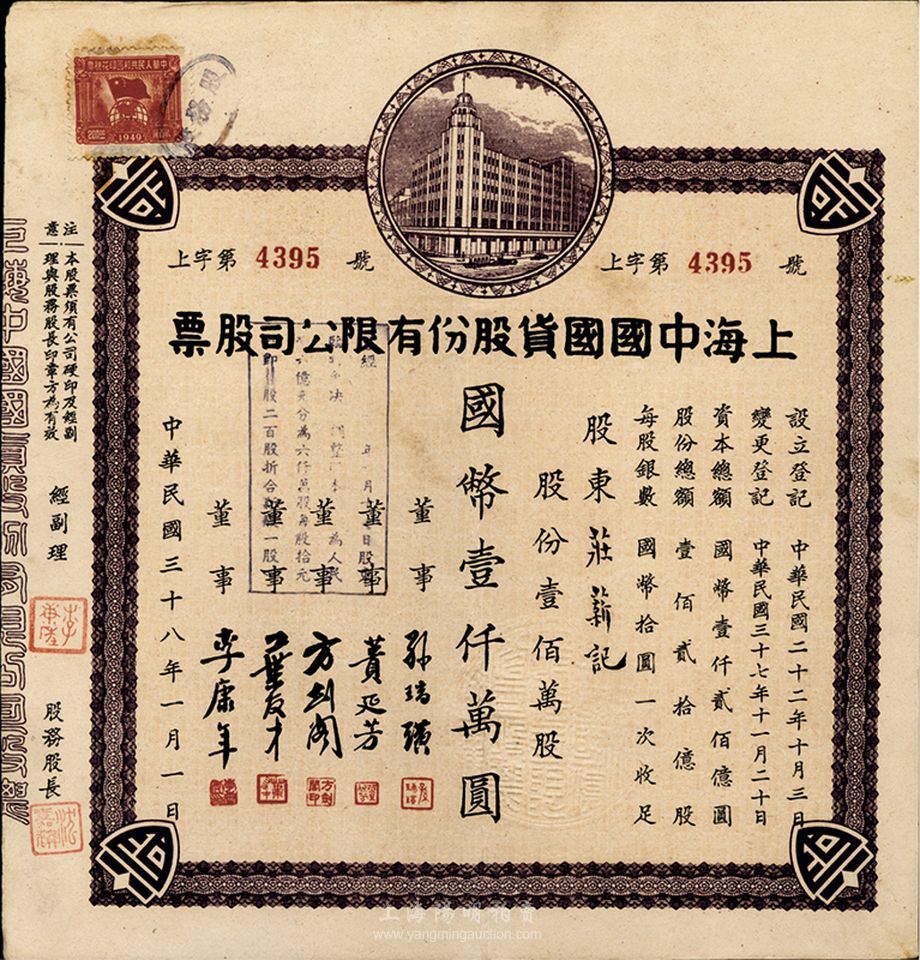 中華人民共和國印花稅票
200圓
1949
上字第 4395 號
上字第 4395 號
上海中國國貨股份有限公司股票
設立登記 中華民國二十二年十月三日
變更登記 中華民國三十七年十一月二十日
資本總額 國幣壹仟貳佰億圓
股份總額 壹佰貳拾億股
每股銀數 國幣拾圓一次收足
股東 莊薪記
股份壹佰萬股
國幣壹仟萬圓
董事 孫瑞璜
董事 黃延芳
董事 方劍閣
董事 葉友才
董事 李康年
中華民國三十八年一月一日
億元分為六仟萬股每股拾元
股二百股折合 一股
注意 本股票須有公司硬印及經副
理與股務股長印章方為有效
經副理
股務股長
上海陽明拍賣
www.yangmingauction.com